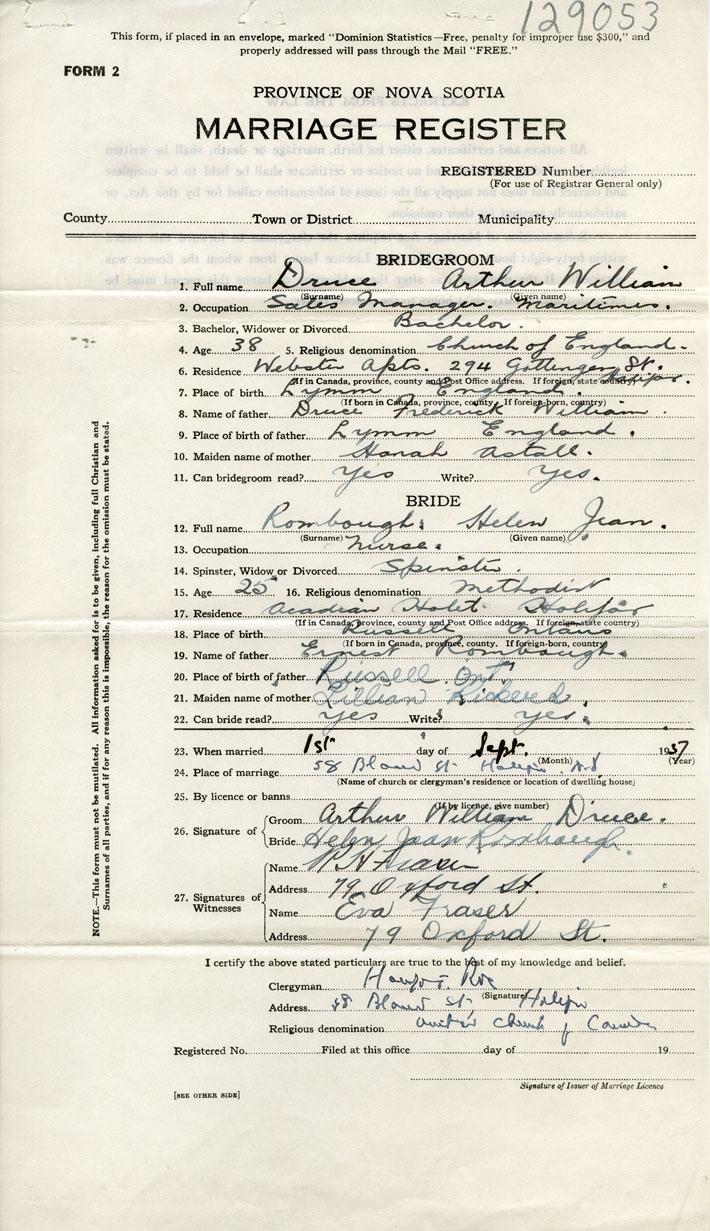 129053
This form, if placed in an envelope, marked "Dominion Statistics—Free, penalty for improper use $300," and
properly addressed will pass through the Mail "FREE."
FORM 2
PROVINCE OF NOVA SCOTIA
MARRIAGE REGISTER
REGISTERED Number
(For use of Registrar General only)
County Town or District Municipality
BRIDEGROOM
1. Full name Druce Arthur William
(Surname) (Given name)
2. Occupation Sales Manager. Maritimes.
3. Bachelor, Widower or Divorced Bachelor.
4. Age 38 5. Religious denomination Church of England.
6. Residence Webster Apts. 294 Gottengen St.
(If in Canada, province, county and Post Office address. If foreign, state country)
7. Place of birth Lymm England.
(If born in Canada, province, county. If foreign-born, country)
8. Name of father Druce Frederick William.
9. Place of birth of father Lymm England.
10. Maiden name of mother Hanah Astall.
11. Can bridegroom read? Yes Write? Yes.
BRIDE
12. Full name Rombough, Helen Jean.
(Surname) (Given name)
13. Occupation Nurse.
14. Spinster, Widow or Divorced Spinster.
15. Age 25 16. Religious denomination Methodist
17. Residence Acadian Hotel Halifax
(If in Canada, province, county and Post Office address. If foreign, state country)
18. Place of birth Russell Ontario
(If born in Canada, province, county. If foreign-born, country)
19. Name of father Ernest Rombough.
20. Place of birth of father Russell. Ont.
21. Maiden name of mother Lillian
22. Can bride read? yes Write? yes.
23. When married 1st day of Sept. 1937
(Month) (Year)
24. Place of marriage 58 Bland St Halifax N.S.
(Name of church or clergyman's residence or location of dwelling house)
25. By licence or banns
(If by licence, give number)
26. Signature of Groom Arthur William Druce.
Bride Helen Jean Rombough.
27. Signatures of Witnesses
Name W H Fraser
Address 79 Oxford St.
Name Eva Fraser
Address 79 Oxford St.
I certify the above stated particulars are true to the best of my knowledge and belief.
Clergyman
(Signature)
Address 58 Bland St Halifax
Religious denomination United Church of Canada
Registered No. Filed at this office day of 19
Signature of Issuer of Marriage Licence
[SEE OTHER SIDE]
NOTE.—This form must not be mutilated. All information asked for is to be given, including full Christian and
Surnames of all parties, and if for any reason this is impossible, the reason for the omission must be stated.